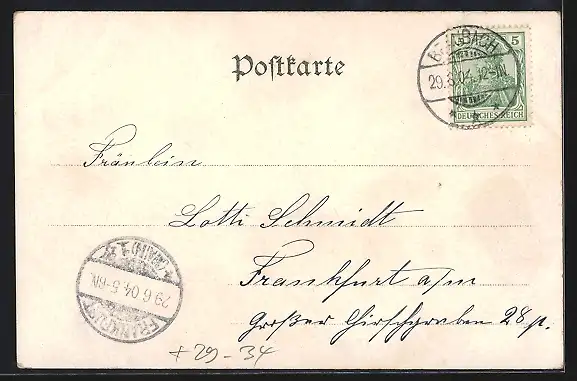 Postkarte
5
DEUTSCHES REICH
29.6.04.12-1N.
Fräulein
Lotti Schmidt
Frankfurt a/m
Großer Hirschgraben 28 p.
FRANKFURT
(MAIN) 1
29.6.04.5-6N.
+ 29 - 34